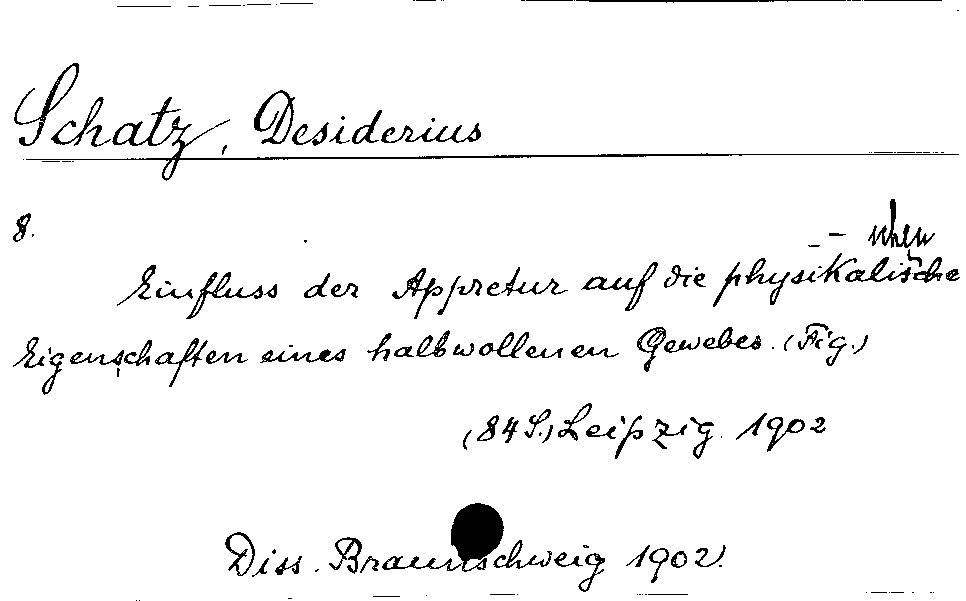 Schatz, Desiderius
8.
schen
Einfluss der Appretur auf die physikalische
Eigenschaften eines halbwollenen Gewebes. (Fig.)
(84 S.) Leipzig. 1902
Diss. Braunschweig 1902.